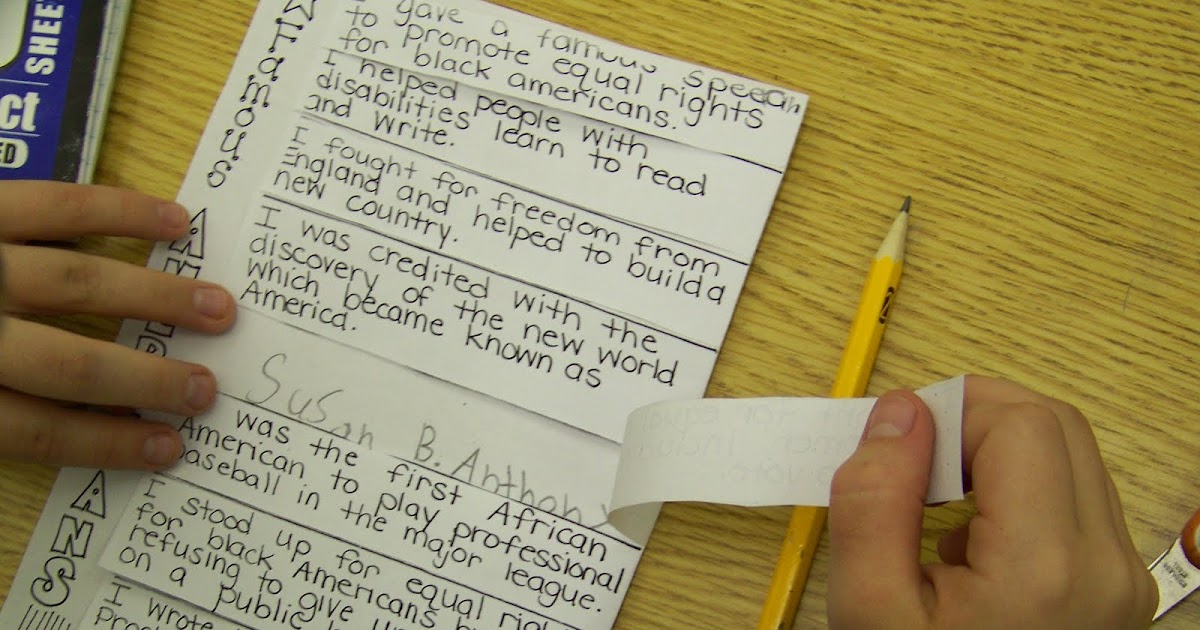 SHEE
ct
ED
Famous
AM
ANS
I gave a famous speech
to promote equal rights
for black americans.
I helped people with
disabilities learn to read
and write.
I fought for freedom from
England and helped to build a
new country.
I was credited with the
discovery of the new world
which became known as
America.
Susan B. Anthony
was the first African
American to play professional
baseball in the major league.
I stood up for equal righ
for black Americans b
refusing to give up
on a public
I wrote
Proc